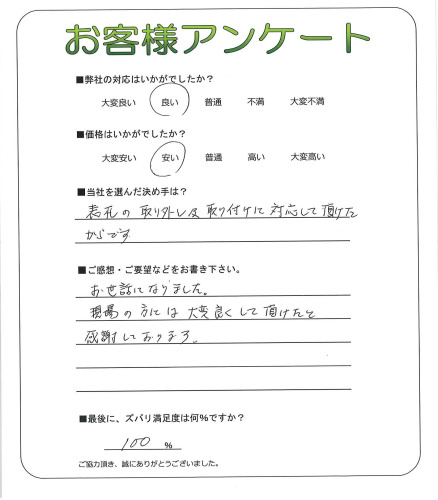 お客様アンケート
■弊社の対応はいかがでしたか？
大変良い 良い 普通 不満 大変不満
■価格はいかがでしたか？
大変安い 安い 普通 高い 大変高い
■当社を選んだ決め手は？
表札の取り外し及取り付けに対応して頂けた
からです
■ご感想・ご要望などをお書き下さい。
お世話になりました。
現場の方には大変良くして頂けたと
感謝しております。
■最後に、ズバリ満足度は何%ですか？
100 %
ご協力頂き、誠にありがとうございました。